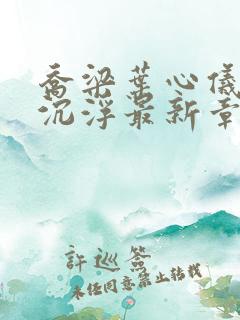 乔梁叶心仪
沉浮最新章
許巡簽
未经同意禁止转载